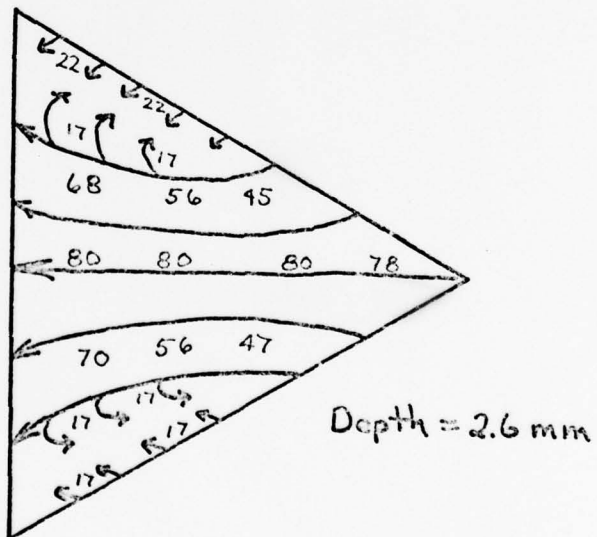 22
22
17
17
68 56 45
80 80 80 78
70 56 47
17
17
17
17
Depth = 2.6 mm